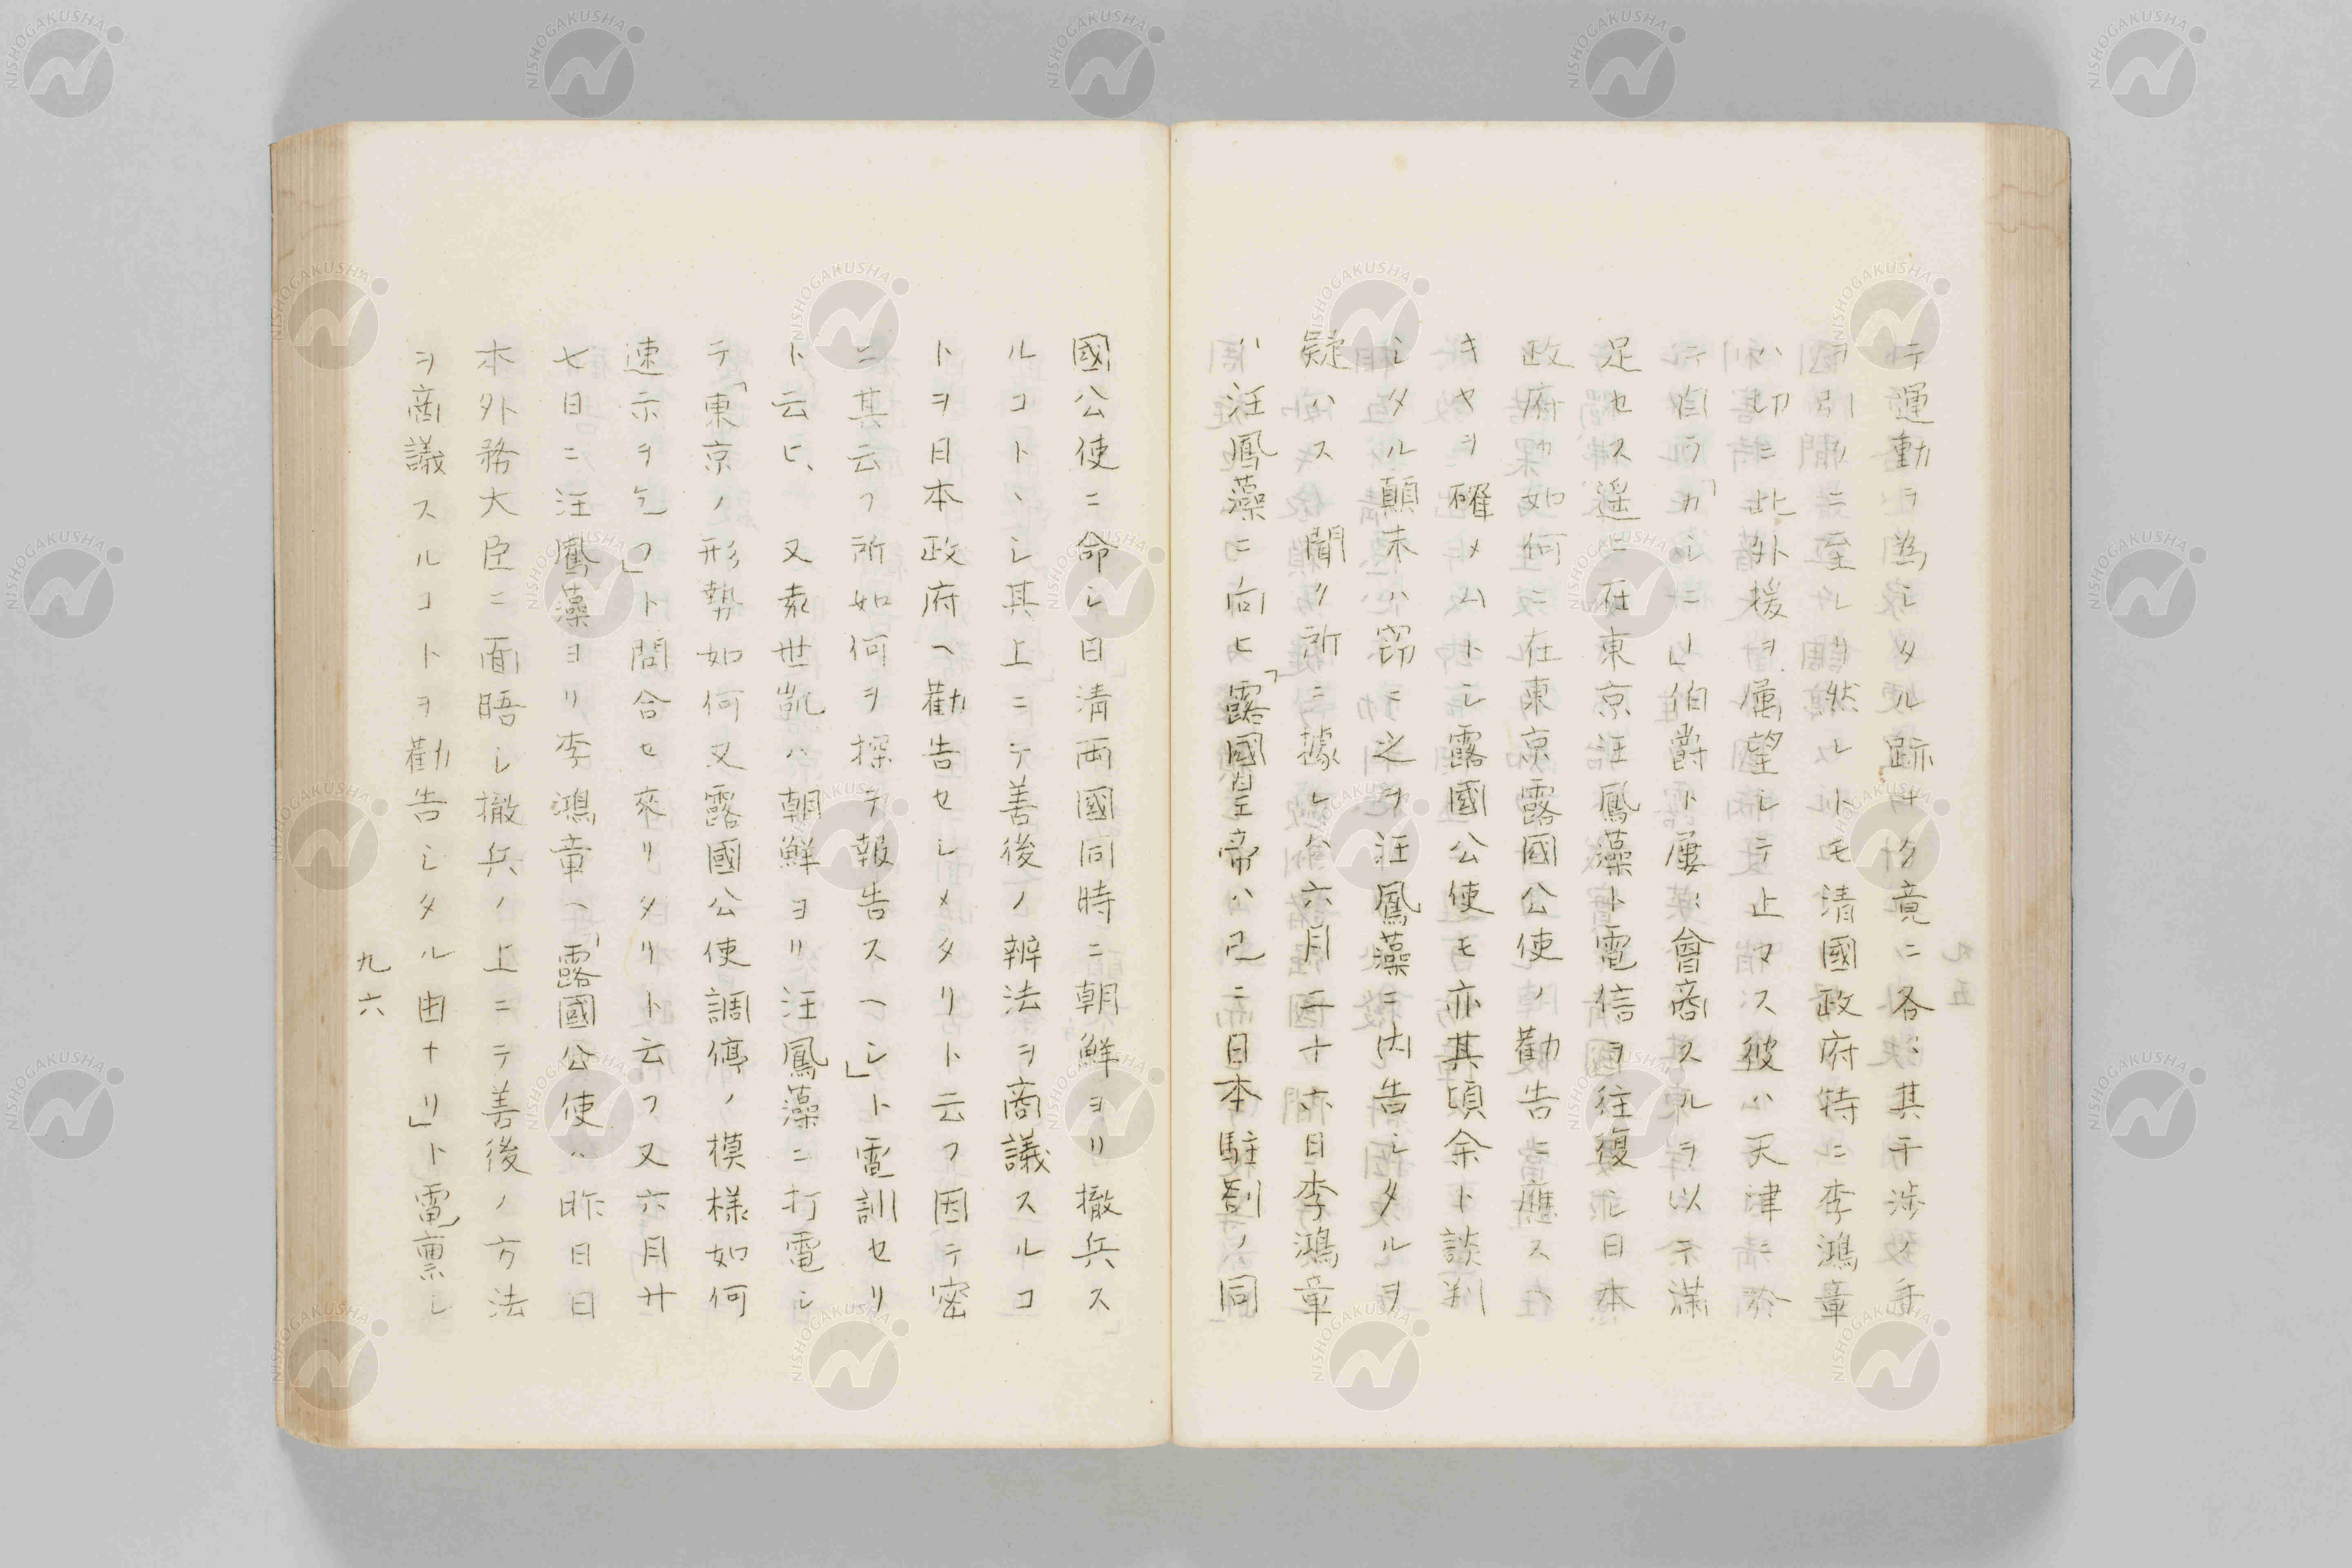 テ運動ヲ為シタル跡ナク竟ニ各〻其干渉ノ手
ヲ引クニ至レリ然レトモ清國政府特ニ李鴻章
ハ切ニ此外援ヲ属望シテ止マス彼ハ天津ニ於
テ自ラ「カシニー」伯爵ト屢〻會商スルヲ以テ滿
足セス遥ニ在東京汪鳳藻ト電信ヲ往復シ日本
政府カ如何ニ在東京露國公使ノ勸告ニ應スヘ
キヤヲ確メムトシ露國公使モ亦其頃余ト談判
シタル顛末ハ窃ニ之ヲ汪鳳藻ニ内告シタルヲ
疑ハス聞ク所ニ據レハ六月二十六日李鴻章
ハ汪鳳藻ニ向ヒ「露國皇帝ハ已ニ日本駐劄ノ同
國公使ニ命シ日清両國同時ニ朝鮮ヨリ撤兵ス
ルコトヽシ其上ニテ善後ノ辨法ヲ商議スルコ
トヲ日本政府ヘ勸告セシメタリト云フ因テ密
ニ其云フ所如何ヲ探テ報告スヘシ」ト電訓セリ
ト云ヒ、又袁世凱ハ朝鮮ヨリ汪鳳藻ニ打電シ
テ「東京ノ形勢如何又露國公使調停ノ模様如何
速示ヲ乞フ」ト問合セ來リタリト云フ又六月廿
七日ニ汪鳳藻ヨリ李鴻章ヘ「露國公使ハ昨日日
本外務大臣ニ面晤シ撤兵ノ上ニテ善後ノ方法
ヲ商議スルコトヲ勸告シタル由ナリ」ト電禀シ
九六
NISHOGAKUSHA